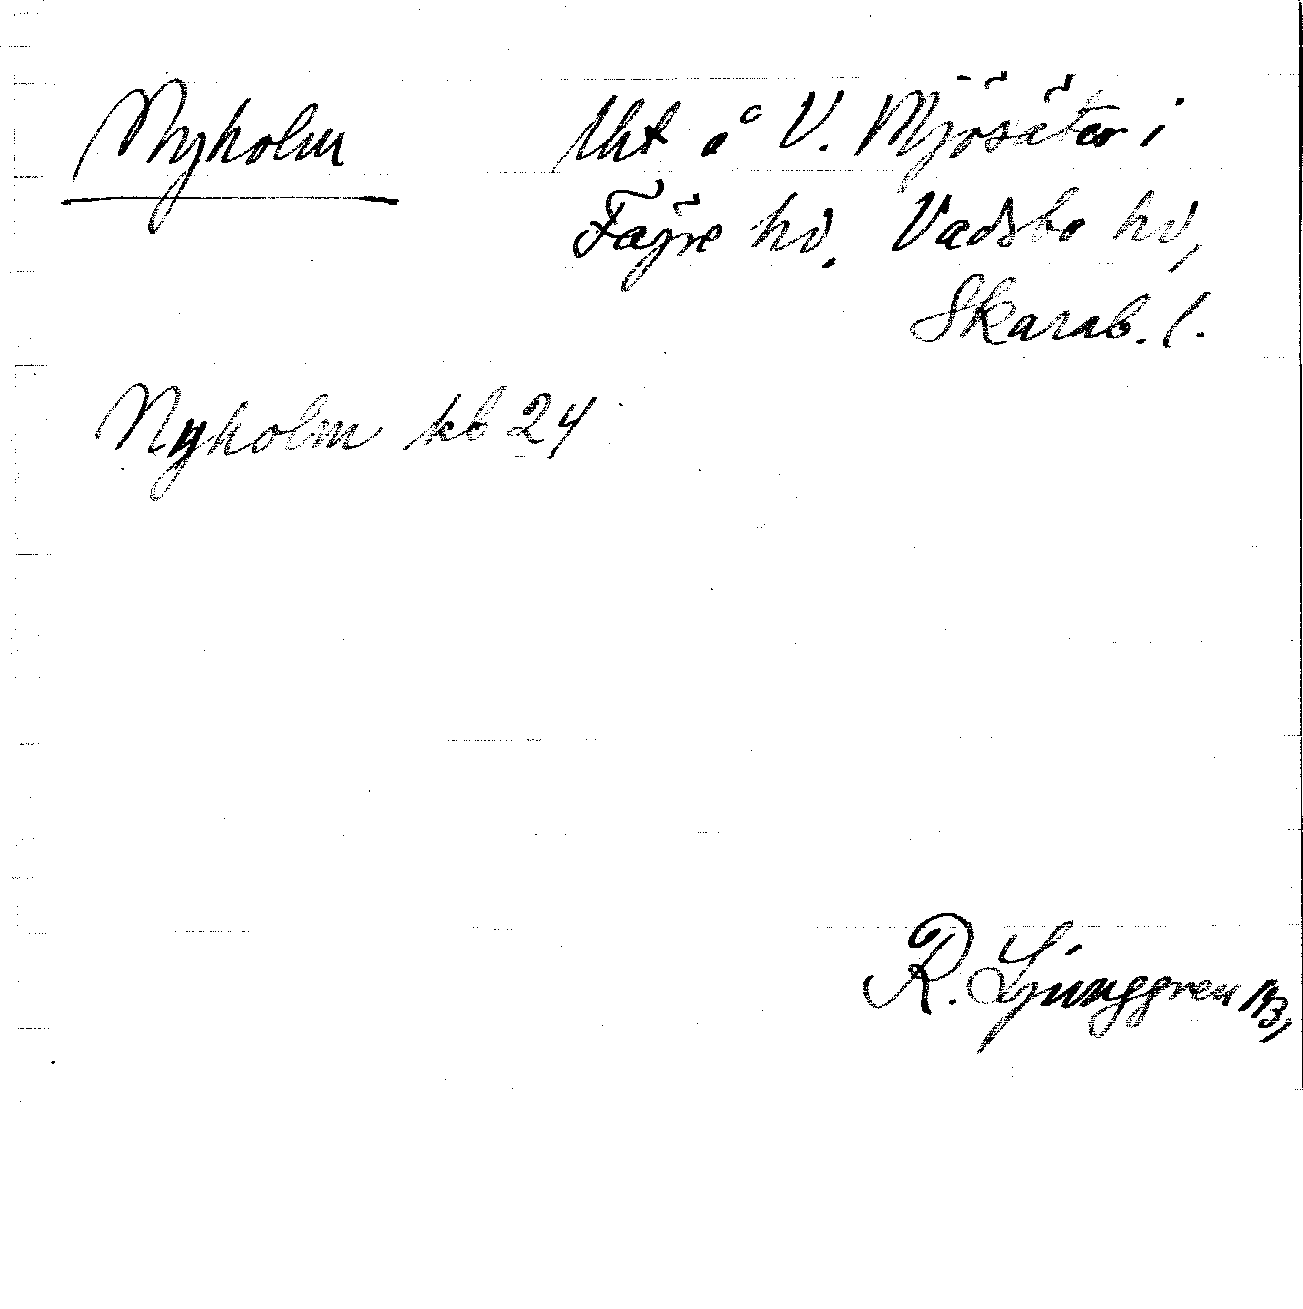 Nyholm
Uht å V. Mjösäter i
Fägre hd, Vadsbo hd,
Skarab. l.
Nyholm kb 24
R. Ljunggren